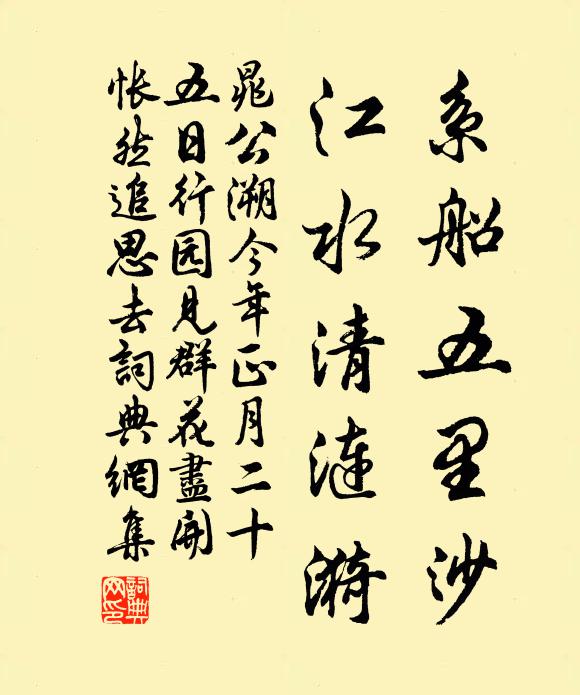 系船五里沙
江水清涟漪
晁公溯今年正月二十
五日行园見群花盡開
怅然追思去詞典網集
詞典网印